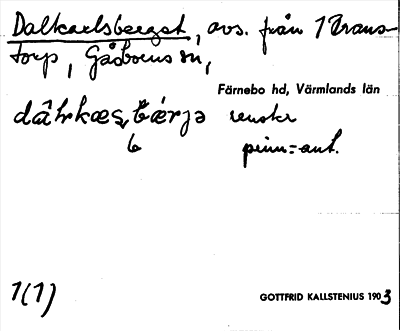 Dalkarlsberget, avs. från 1 Trans-
torp, Gåsborns sn,
Färnebo hd, Värmlands län
dåhrkæs,bærjə renskr
b penn=ant.
1(1)
GOTTFRID KALLSTENIUS 1903